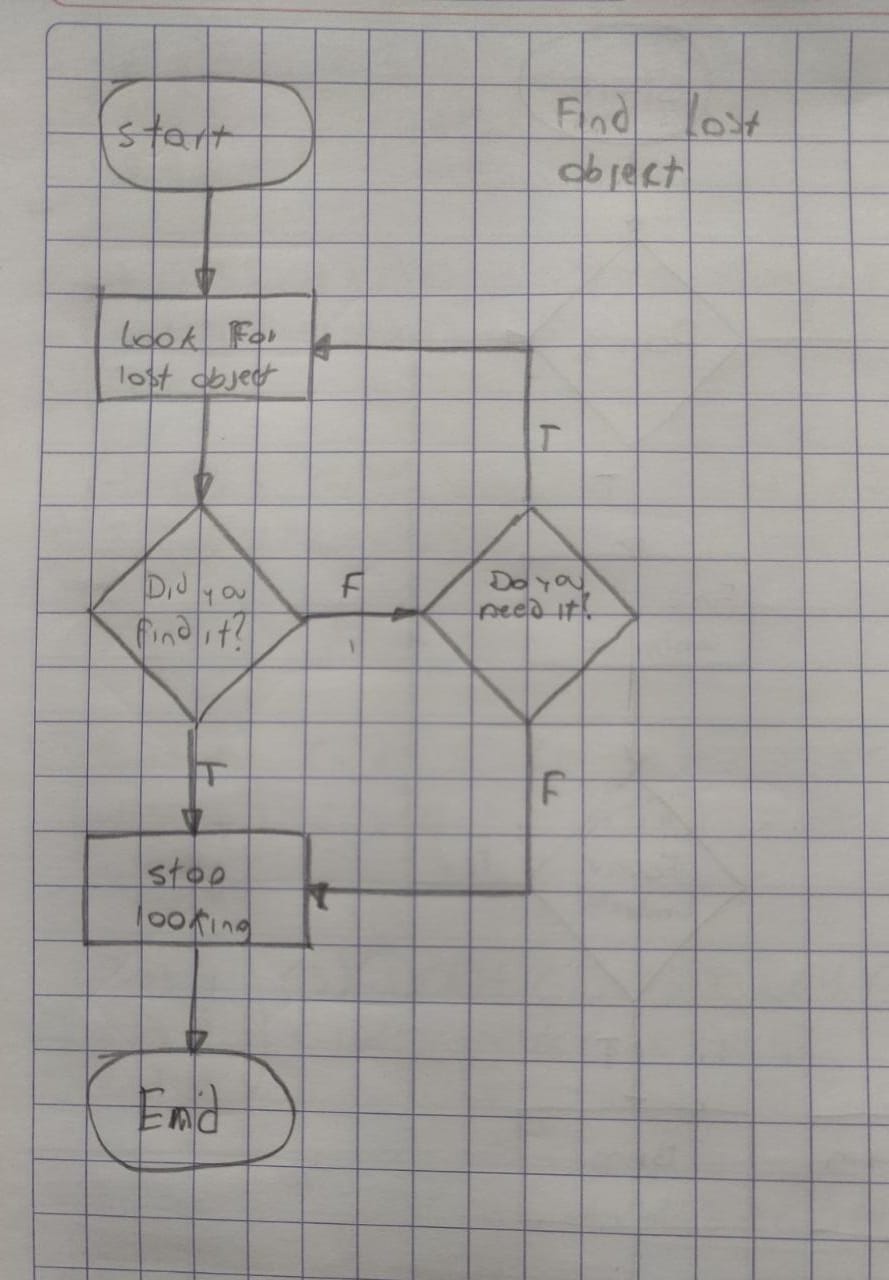 start
Find lost
object
Look For
lost object
T
Did you
find it?
F
Do you
need it?
T
F
stop
looking
End